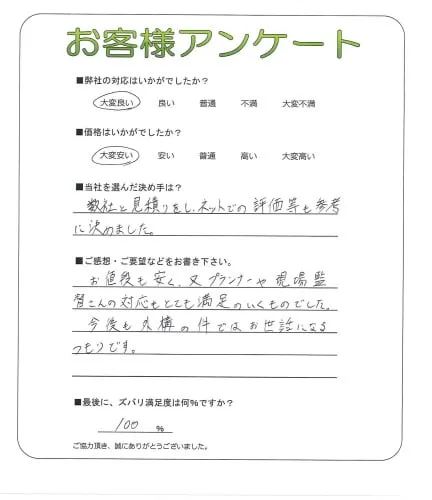 お客様アンケート
■弊社の対応はいかがでしたか？
大変良い 良い 普通 不満 大変不満
■価格はいかがでしたか？
大変安い 安い 普通 高い 大変高い
■当社を選んだ決め手は？
数社と見積りをし、ネットでの評価等も参考
に決めました。
■ご感想・ご要望などをお書き下さい。
お値段も安く、又プランナーや現場監
督さんの対応もとても満足のいくものでした。
今後も外構の件ではお世話になる
つもりです。
■最後に、ズバリ満足度は何%ですか？
100 %
ご協力頂き、誠にありがとうございました。